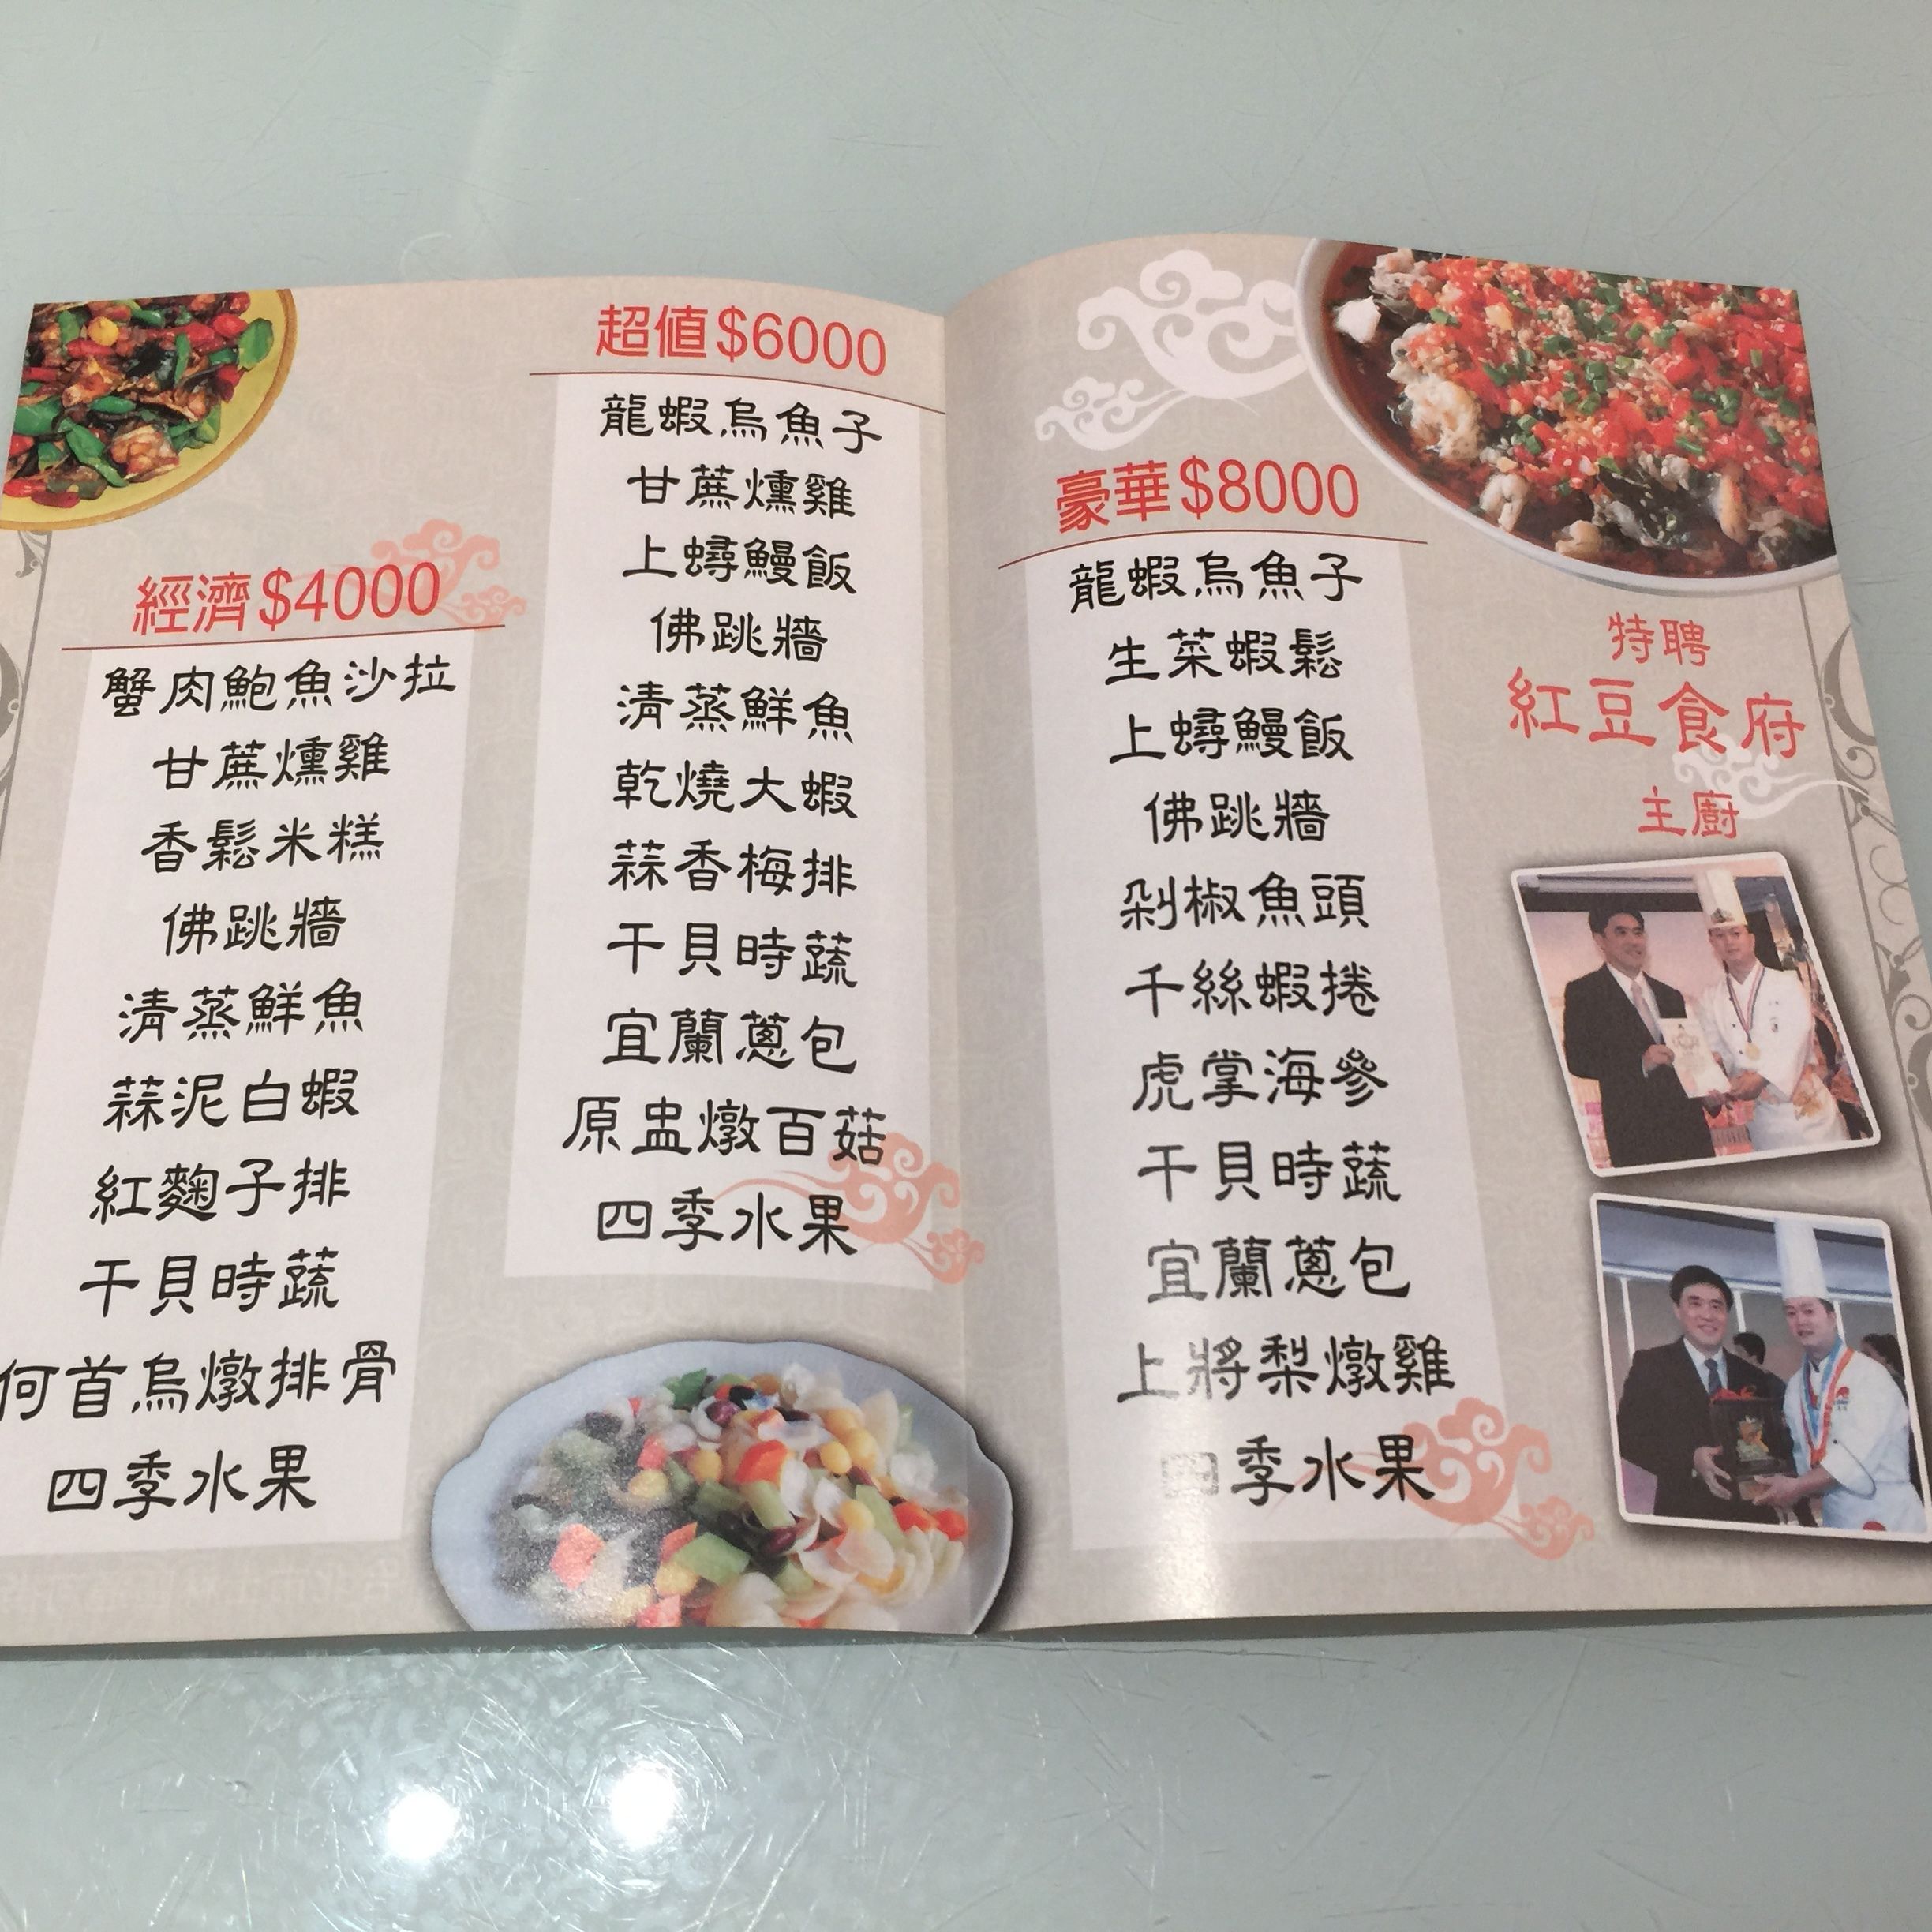 經濟$4000
蟹肉鮑魚沙拉
甘蔗燻雞
香鬆米糕
佛跳牆
清蒸鮮魚
蒜泥白蝦
紅麴子排
干貝時蔬
何首烏燉排骨
四季水果
超值$6000
龍蝦烏魚子
甘蔗燻雞
上蟳鰻飯
佛跳牆
清蒸鮮魚
乾燒大蝦
蒜香梅排
干貝時蔬
宜蘭蔥包
原盅燉百菇
四季水果
豪華$8000
龍蝦烏魚子
生菜蝦鬆
上蟳鰻飯
佛跳牆
剁椒魚頭
千絲蝦捲
虎掌海參
干貝時蔬
宜蘭蔥包
上將梨燉雞
四季水果
特聘
紅豆食府
主廚